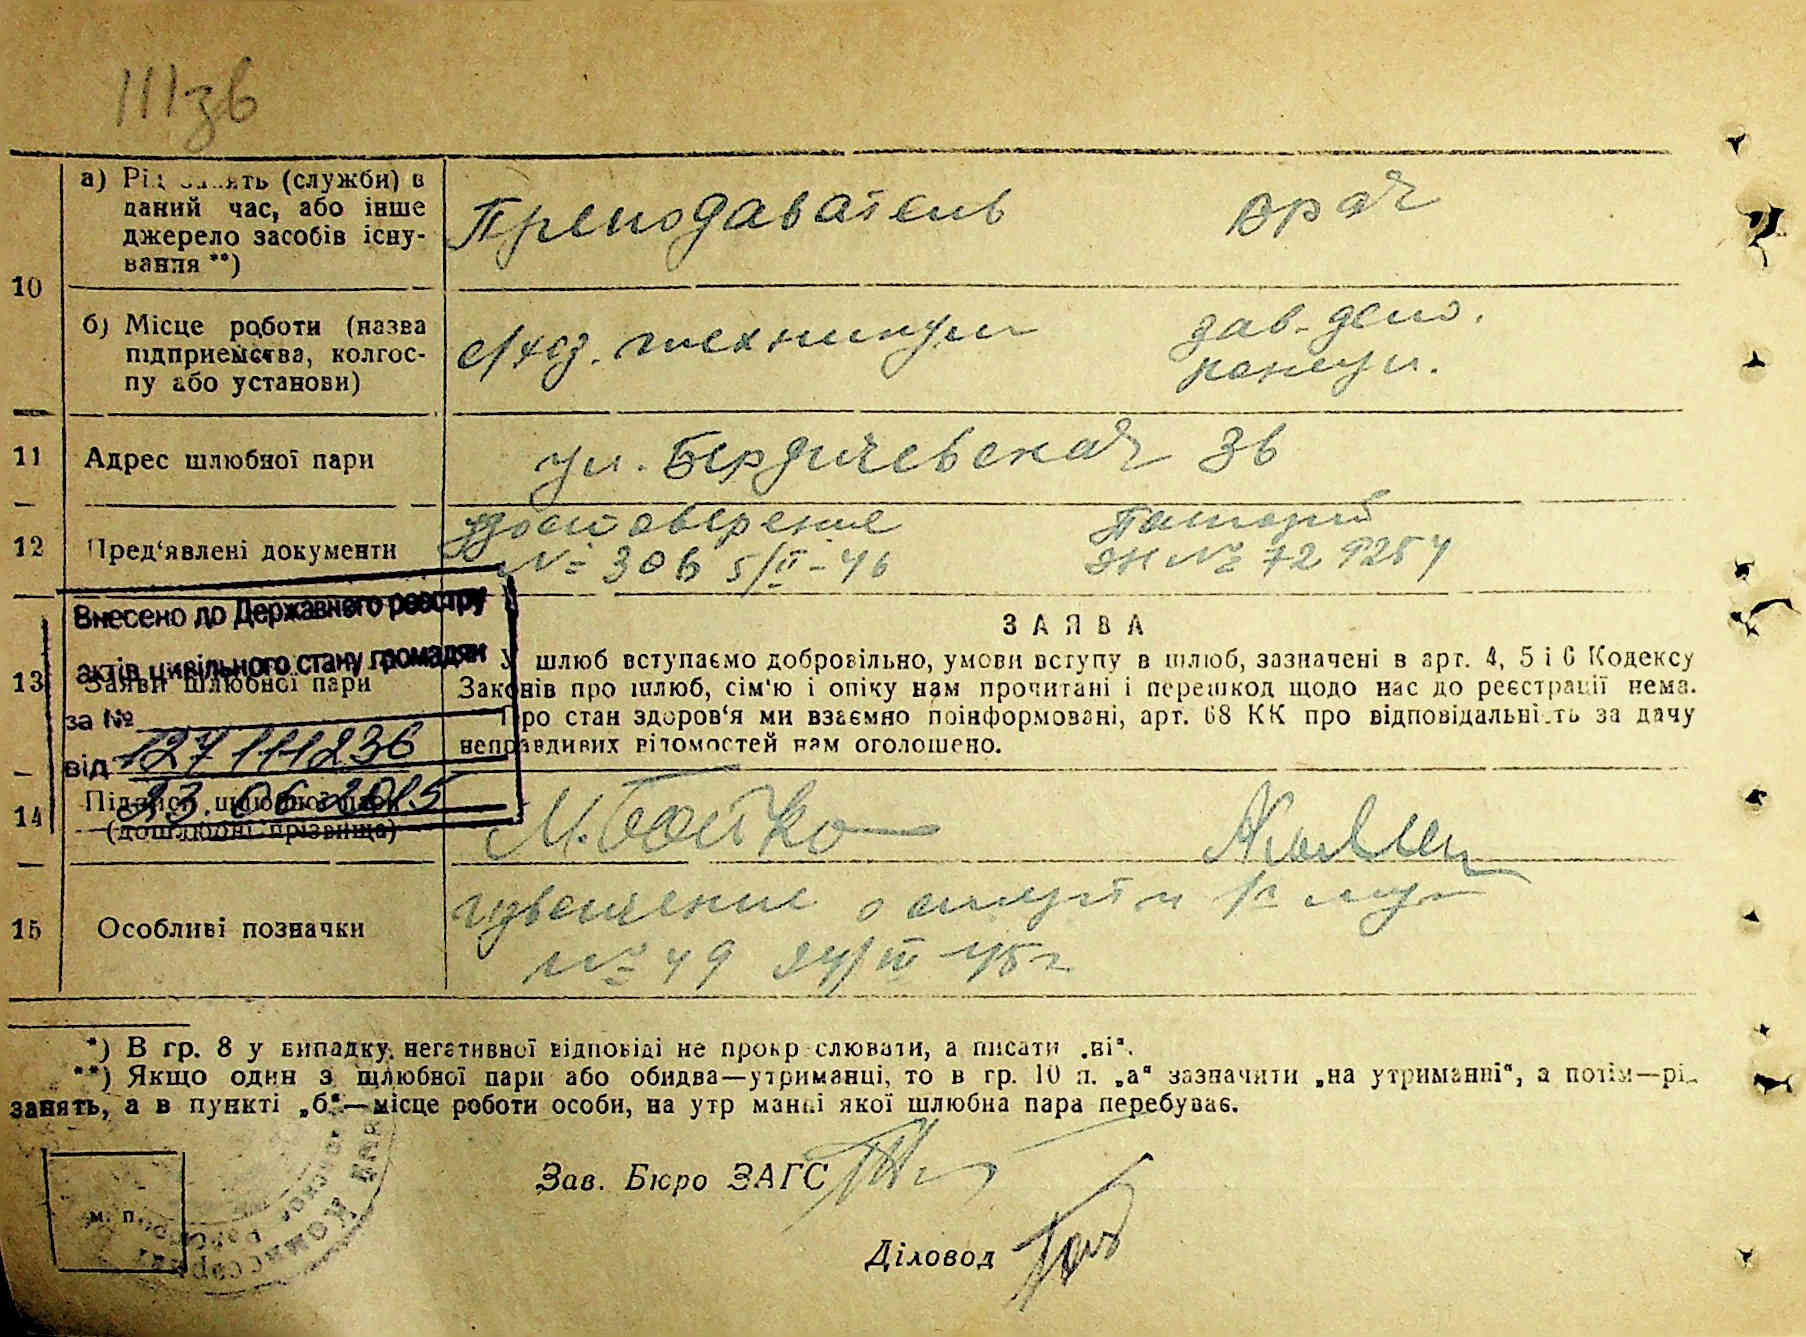 10
а) Рід занять (служби) в
даний час, або інше
джерело засобів існу-
вання **)
Преподаватель врач
б) Місце роботи (назва
підприємства, колгос-
пу або установи)
с/хоз. техникум зав. дет.
консул.
11 Адрес шлюбної пари ул. Бердичевская 36
12 Пред‘явлені документи
Удостоверение Паспорт
№ 306 5/II-46 № 729254
Внесено до Державного реєстру
актів цивільного стану громадян
за № 127111236
від 23.06.2015
13 Заяви шлюбної пари
ЗАЯВА
У шлюб вступаємо добровільно, умови вступу в шлюб, зазначені в арт. 4, 5 і 6 Кодексу
Законів про шлюб, сім'ю і опіку нам прочитані і перешкод щодо нас до реєстрації нема.
Про стан здоров‘я ми взаємно поінформовані, арт. 68 КК про відповідальність за дачу
неправдивих відомостей нам оголошено.
14 Підписи шлюбної пари
(дошлюбні прізвища)
М. Бойко
15 Особливі позначки
извещение о смерти 1го муж
№ 49 24/III-45г
*) В гр. 8 у випадку негативної відповіді не прокреслювати, а писати „ні“.
**) Якщо один з шлюбної пари або обидва—утриманці, то в гр. 10 п. „а“ зазначити „на утриманні“, а потім—рід
занять, а в пункті „б“—місце роботи особи, на утриманні якої шлюбна пара перебуває.
Зав. Бюро ЗАГС
м. п.
Діловод